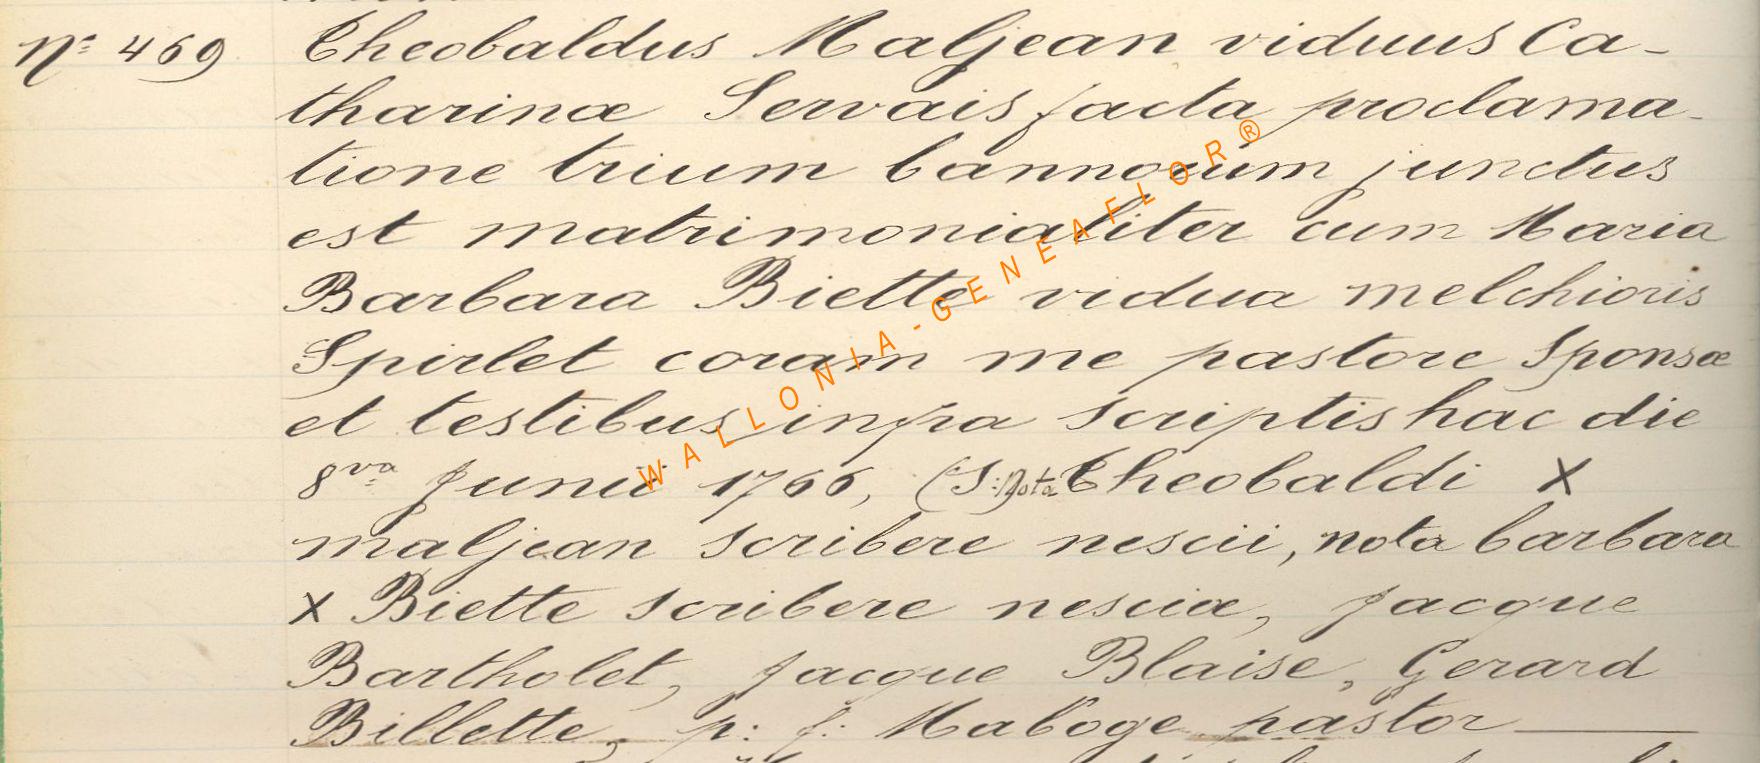 Nº 469 Theobaldus Maljean viduus Ca-
tharinæ Servais facta proclama-
tione trium bannorum junctus
est matrimonialiter cum Maria
Barbara Biette vidua melchioris
Spirlet coram me pastore Sponsæ
et testibus infra scriptis hac die
8va Junii 1766, (S: Nota Theobaldi X
maljean scribere nescii, nota barbara
X Biette scribere nesciæ, Jacque
Bartholet, Jacque Blaise, Gerard
Billette, p: f: Maboge pastor
WALLONIA-GENEAFLOR®